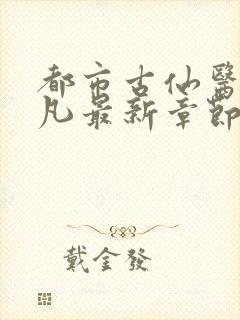 都市古仙醫
凡最新章節
戴金發